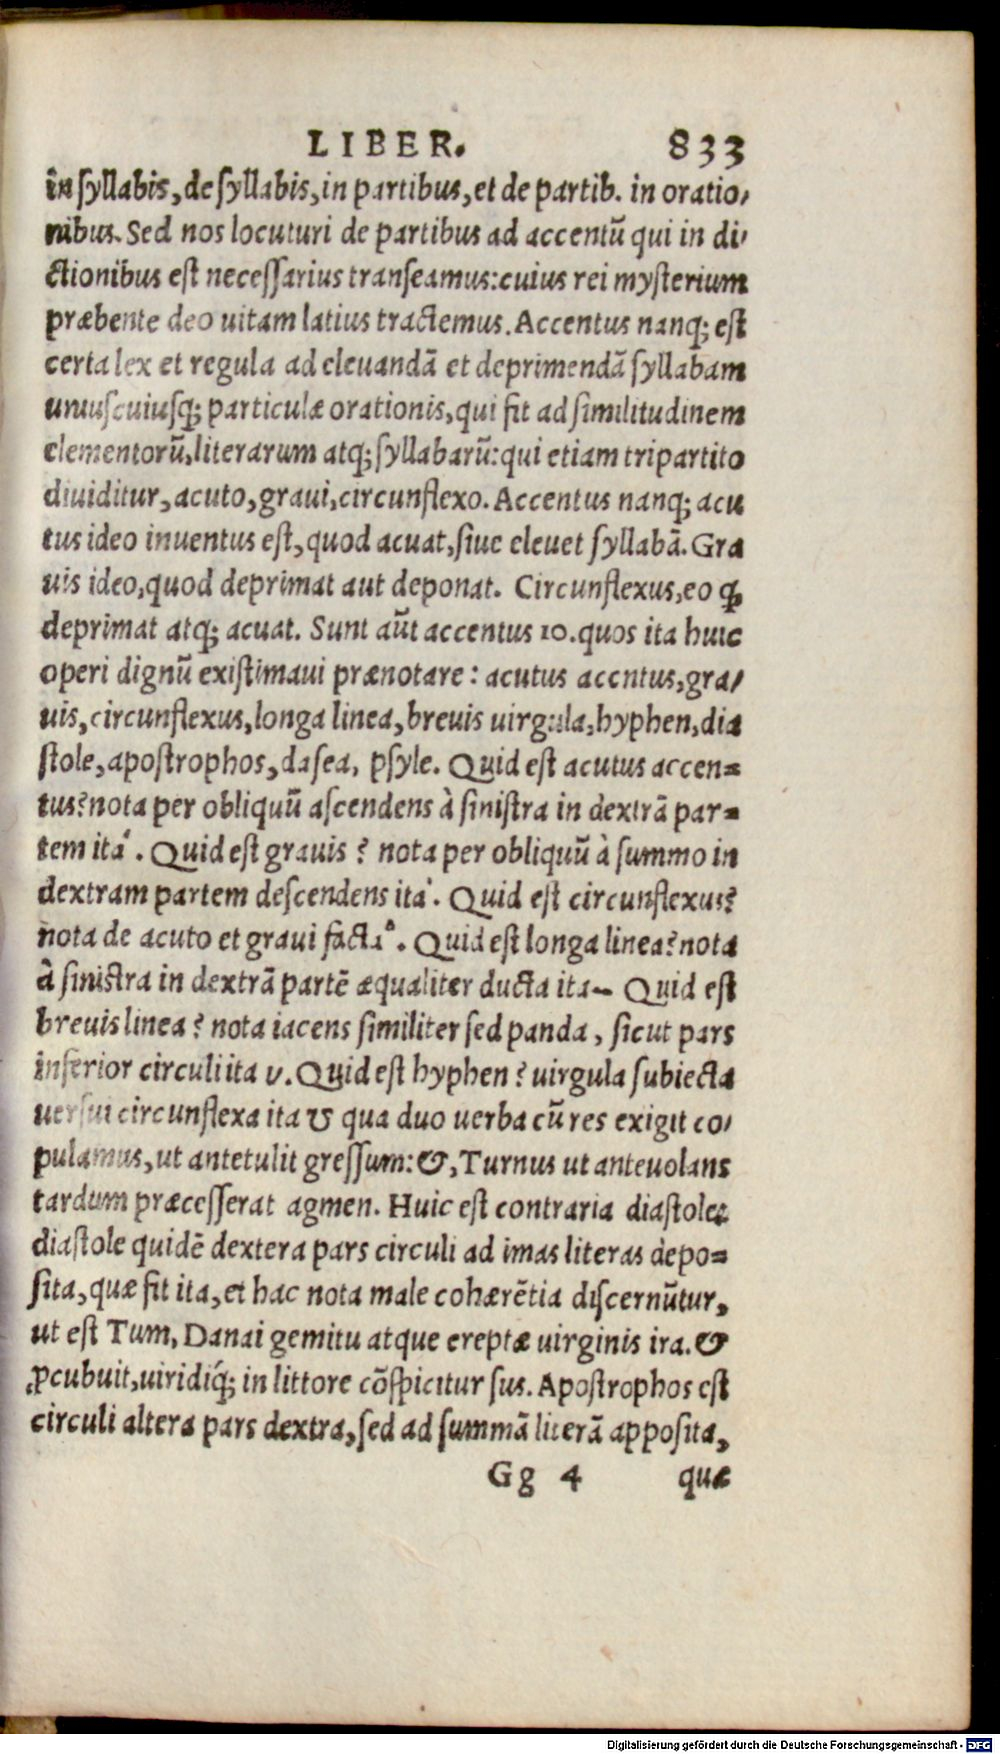 LIBER. 833
in syllabis, de syllabis, in partibus, et de partib. in oratio,
nibus. Sed nos locuturi de partibus ad accentũ qui in di,
ctionibus est necessarius transeamus: cuius rei mysterium
præbente deo uitam latius tractemus. Accentus nanq; est
certa lex et regula ad eleuandã et deprimendã syllabam
uniuscuiusq; particulæ orationis, qui fit ad similitudinem
elementorũ, literarum atq; syllabarũ: qui etiam tripartito
diuiditur, acuto, graui, circunflexo. Accentus nanq; acu
tus ideo inuentus est, quod acuat, siue eleuet syllabã. Gra
uis ideo, quod deprimat aut deponat. Circunflexus, eo ꝙ
deprimat atq; acuat. Sunt aũt accentus 10. quos ita huic
operi dignũ existimaui prænotare: acutus accntus, gra,
uis, circunflexus, longa linea, breuis uirgula, hyphen, dia
stole, apostrophos, dasea, psyle. Quid est acutus accen=
tus? nota per obliquũ ascendens à sinistra in dextrã par=
tem ita ´. Quid est grauis? nota per obliquũ à summo in
dextram partem descendens ita `. Quid est circunflexus?
nota de acuto et graui facta ^. Quid est longa linea? nota
à sinistra in dextrã partẽ æqualiter ducta ita – Quid est
breuis linea? nota iacens similiter sed panda, sicut pars
inferior circuli ita υ. Quid est hyphen? uirgula subiecta
uersui circunflexa ita ʊ qua duo uerba cũ res exigit co,
pulamus, ut antetulit gressum: &, Turnus ut anteuolans
tardum præcesserat agmen. Huic est contraria diastole:
diastole quidẽ dextera pars circuli ad imas literas depo=
sita, quæ fit ita, et hac nota male cohærẽtia discernũtur,
ut est Tum, Danai gemitu atque ereptæ uirginis ira. &
ꝓcubuit, uiridiq́; in littore cõspicitur sus. Apostrophos est
circuli altera pars dextra, sed ad summã literã apposita,
Gg 4 quæ
Digitalisierung gefördert durch die Deutsche Forschungsgemeinschaft - DFG